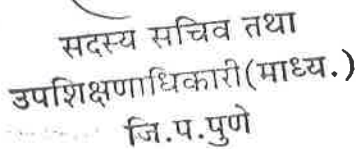 सदस्य सचिव तथा
उपशिक्षणाधिकारी(माध्य.)
जि.प.पुणे